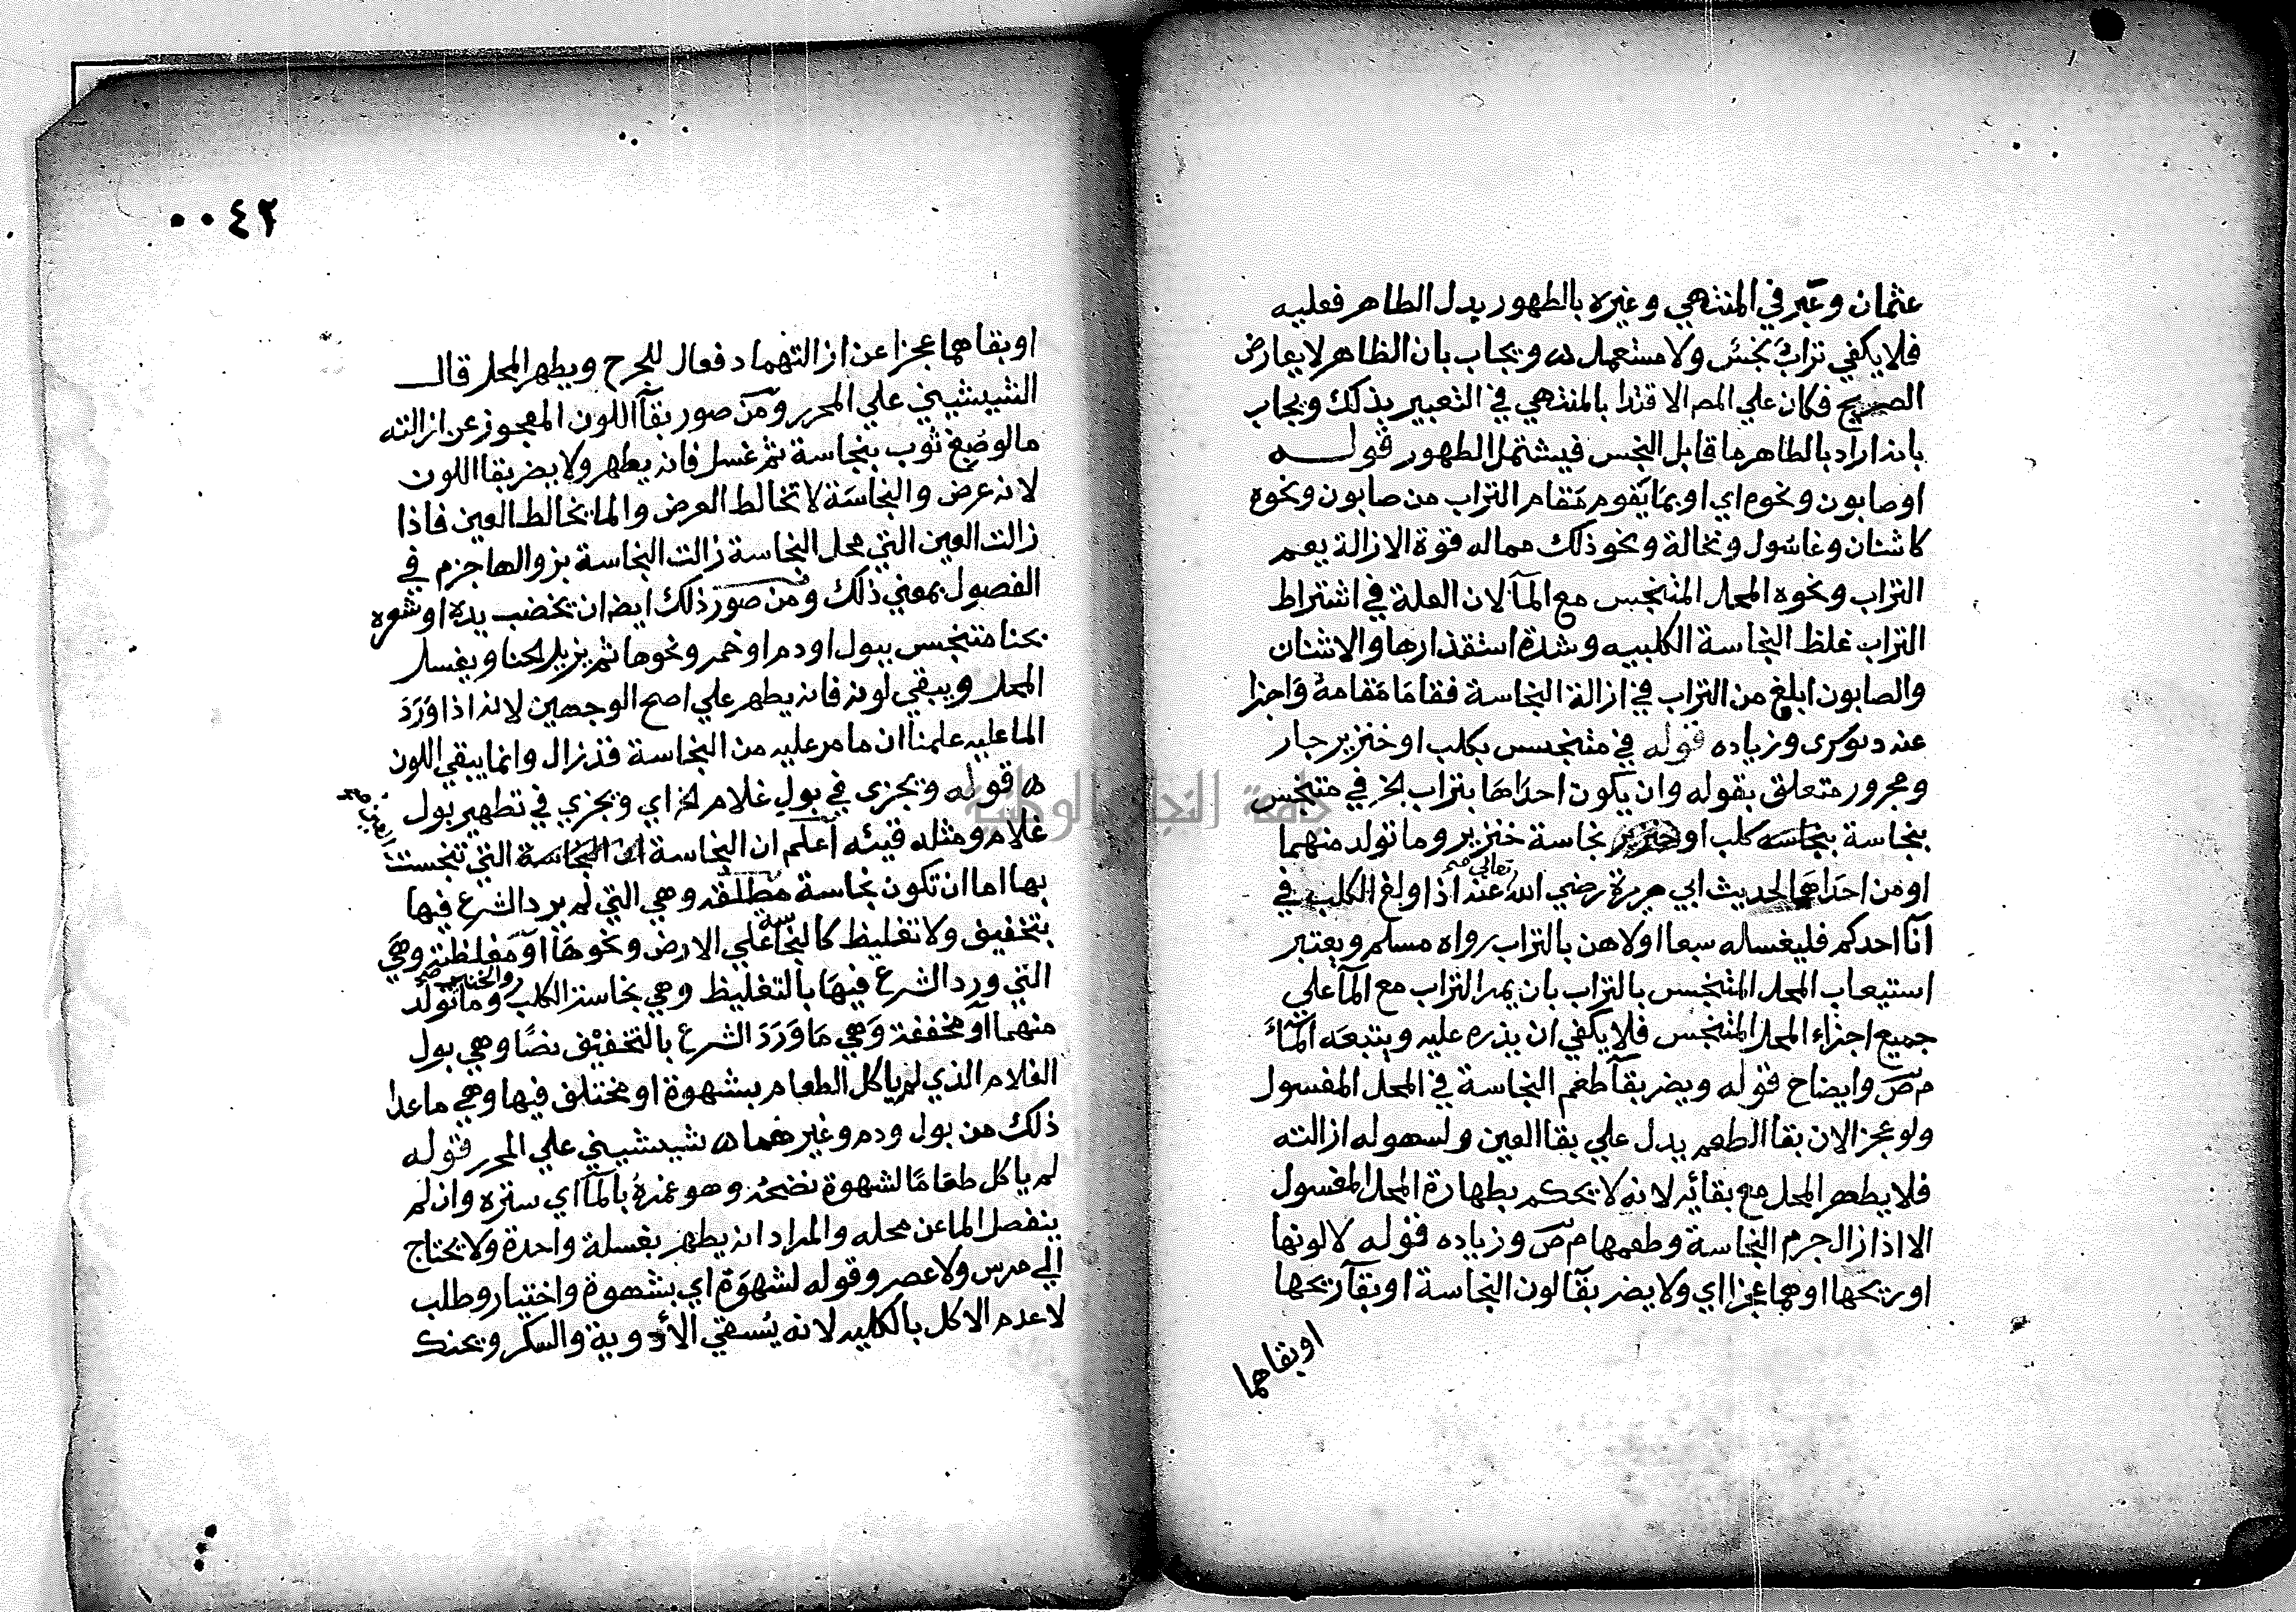 عثمان وعبر في المنتهي وغيره بالطهور بدل الطاهر فعليه
فلا يكفي تراب نجس ولا مستعمل ه ويجاب بان الظاهر لا يعارض
الصريح فكان علي المص الاقتدا بالمنتهي في التعبير بذلك ويجاب
بانه اراد بالطاهر ما قابل النجس فيشتمل الطهور قوله
او صابون ونحوه اي او بما يقوم مقام التراب من صابون ونحوه
كاشنان وغاسول ونخالة ونحو ذلك مما له قوة الازالة يعم
التراب ونحوه المحل المتنجس مع المآ لان العلة في اشتراط
التراب غلظ النجاسة الكلبيه وشدة استقذارها والاشنان
والصابون ابلغ من التراب في ازالة النجاسة فقاما مقامه واجزا
عنه دنوكرى وزياده قوله في متنجس بكلب او خنزير جار
ومجرور متعلق بقوله وان يكون احداها بتراب الخ في متنجس
بنجاسة بنجاسة كلب او خنزير نجاسة خنزير وما تولد منهما
او من احداها لحديث ابي هريرة رضي الله تعالي عنه اذا ولغ الكلب في
انآ احدكم فليغسله سبعا اولاهن بالتراب رواه مسلم ويعتبر
استيعاب المحل المتنجس بالتراب بان يمر التراب مع المآ علي
جميع اجزاء المحل المتنجس فلا يكفي ان يذره عليه ويتبعه المآء
م ص وايضاح قوله ويضر بقآ طعم النجاسة في المحل المغسول
ولو عجز الان بقا الطعم يدل علي بقا العين ولسهوله ازالته
فلا يطهر المحل مع بقائه لانه لا يحكم بطهارة المحل المغسول
الا اذا زال جرم النجاسة وطعمها م ص وزياده قوله لا لونها
او ريحها او هما عجزا اي ولا يضر بقآ لون النجاسة او بقآ ريحها
او بقاهما
٠٠٤٢
او بقاهما عجزا عن ازالتهما دفعا للحرج ويطهر المحل قال
الشيشيني علي المحرر ومن صور بقآ اللون المعجوز عن ازالته
ما لو صبغ ثوب بنجاسة ثم غسل فانه يطهر ولا يضر بقا اللون
لانه عرض والنجاسة لا تخالط العرض والما يخالط العين فاذا
زالت العين التي محل النجاسة زالت النجاسة بزوالها جزم في
الفصول بمعني ذلك ومن صور ذلك ايضا ان يخضب يده او شعره
بحنا متنجس ببول او دم او خمر ونحوها ثم يزيل الحنا ويغسل
المحل ويبقي لونه فانه يطهر علي اصح الوجهين لانه اذا ورد
الما عليه علمنا ان ما مر عليه من النجاسة قد زال وانما يبقي اللون
ه قوله ويجزى في بول غلام الخ اي ويجزي في تطهير بول
غلام ومثله قيئه اعلم ان النجاسة ان النجاسة التي تنجست
بها اما ان تكون نجاسة مطلقه وهي التي لم يرد الشرع فيها
بتخفيف ولا تغليظ كالنجاسة علي الارض ونحوها او مغلظة وهي
التي ورد الشرع فيها بالتغليظ وهي نجاسة الكلب والخنزير وما تولد
منهما او مخففة وهي ما ورد الشرع بالتخفيف نصا وهي بول
الغلام الذي لم ياكل الطعام بشهوة او مختلف فيها وهي ما عدا
ذلك من بول ودم وغيرهما ه شيشيني علي المحرر قوله
لم ياكل طعاما لشهوة نضحه وهو غمره بالمآ اي ستره وان لم
ينفصل الما عن محله والمراد انه يطهر بغسلة واحدة ولا يحتاج
الي مرس ولا عصر وقوله لشهوة اي بشهوة واختيار وطلب
لا عدم الاكل بالكليه لانه يسقي الأدوية والسكر ويحنك